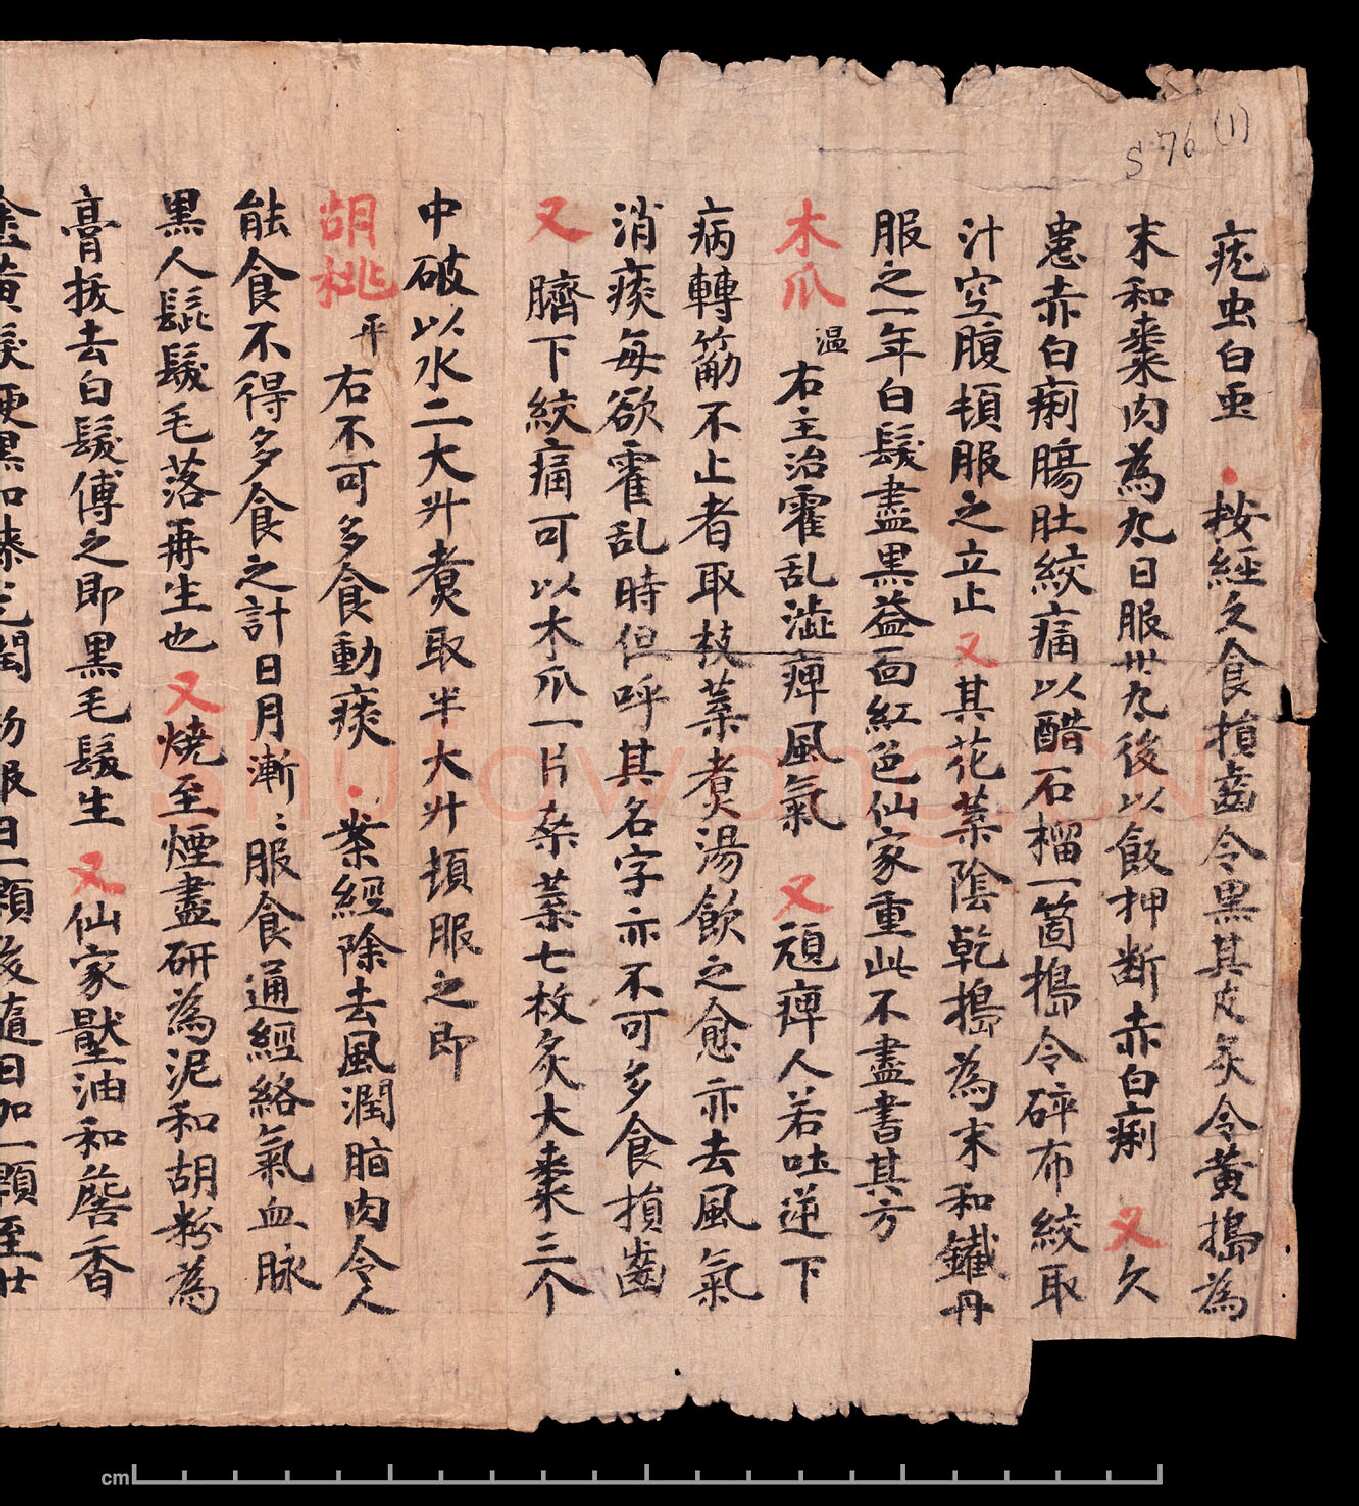 S 76 (1)
疣虫白虫 按經久食損齒令黑其皮炙令黃搗為
末和棗肉為丸日服卅丸後以飯押断赤白痢 又久
患赤白痢腸肚絞痛以醋石榴一箇搗令碎布絞取
汁空腹頓服之立止 又其花葉陰乾搗為末和鐵丹
服之一年白髮盡黑益面紅色仙家重此不盡書其方
木瓜 温 右主治霍乱澁痺風氣 又頑痺人若吐逆下
病轉筋不止者取枝葉煮湯飲之愈亦去風氣
消痰每欲霍乱時但呼其名字亦不可多食損齒
又 臍下絞痛可以木瓜一片桒葉七枚炙大棗三个
中破以水二大升煮取半大升頓服之即
胡桃 平 右不可多食動痰 案經除去風潤脂肉令人
能食不得多食之計日月漸〻服食通經絡氣血脉
黑人髭髮毛落再生也 又燒至煙盡研為泥和胡粉為
膏拔去白髮傅之即黑毛髮生 又仙家壓油和詹香
塗黃髮便黑如漆光潤 初服日一顆後隨日加一顆至廿
cm